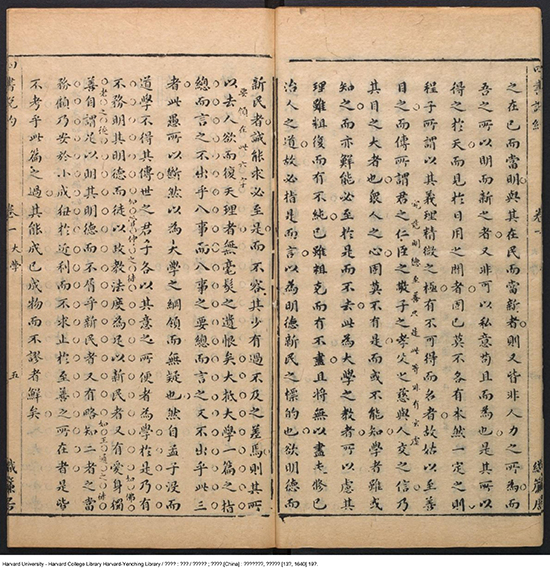 之在已而當明與其在民而當新者則又皆非人力之所為而
吾之所以明而新之者又非可以私意苟且而為也是其所以
得之於天而見於日用之間者固已莫不各有本然一定之則
程子所謂以其義理精微之極有不可得而名者故姑以至善
目之而傳所謂君之仁臣之敬子之孝父之慈與人交之信乃
其目之大者也眾人之心固莫不有是而或不能知學者雖或
知之而亦鮮能必至於是而不去此為大學之教者所以慮其
理雖粗復而有不純已雖粗克而有不盡且將無以盡夫修已
治人之道故必指是而言以為明德新民之標的也欲明德而
新民者誠能求必至是而不容其少有過不及之差焉則其所
以去人欲而復天理者無毫髮之遺恨矣大抵大學一篇之指
總而言之不出乎八事而八事之要總而言之又不出乎此三
者此愚所以斷然以為大學之綱領而無疑也然自孟子沒而
道學不得其傳世之君子各以其意之所便者為學於是乃有
不務明其明德而徒以政教法度為足以新民者又有愛身獨
善自謂足以明其明德而不屑乎新民者又有略知二者之當
務顧乃安於小成狃於近利而不求止於至善之所在者是皆
不考乎此篇之過其能成已成物而不謬者鮮矣
四書說約
卷一大學
五
Harvard University - Harvard College Library Harvard-Yenching Library / ???? : ??? / ????? ; ????.[China] : ???????, ????? [13?, 1640] 19?.